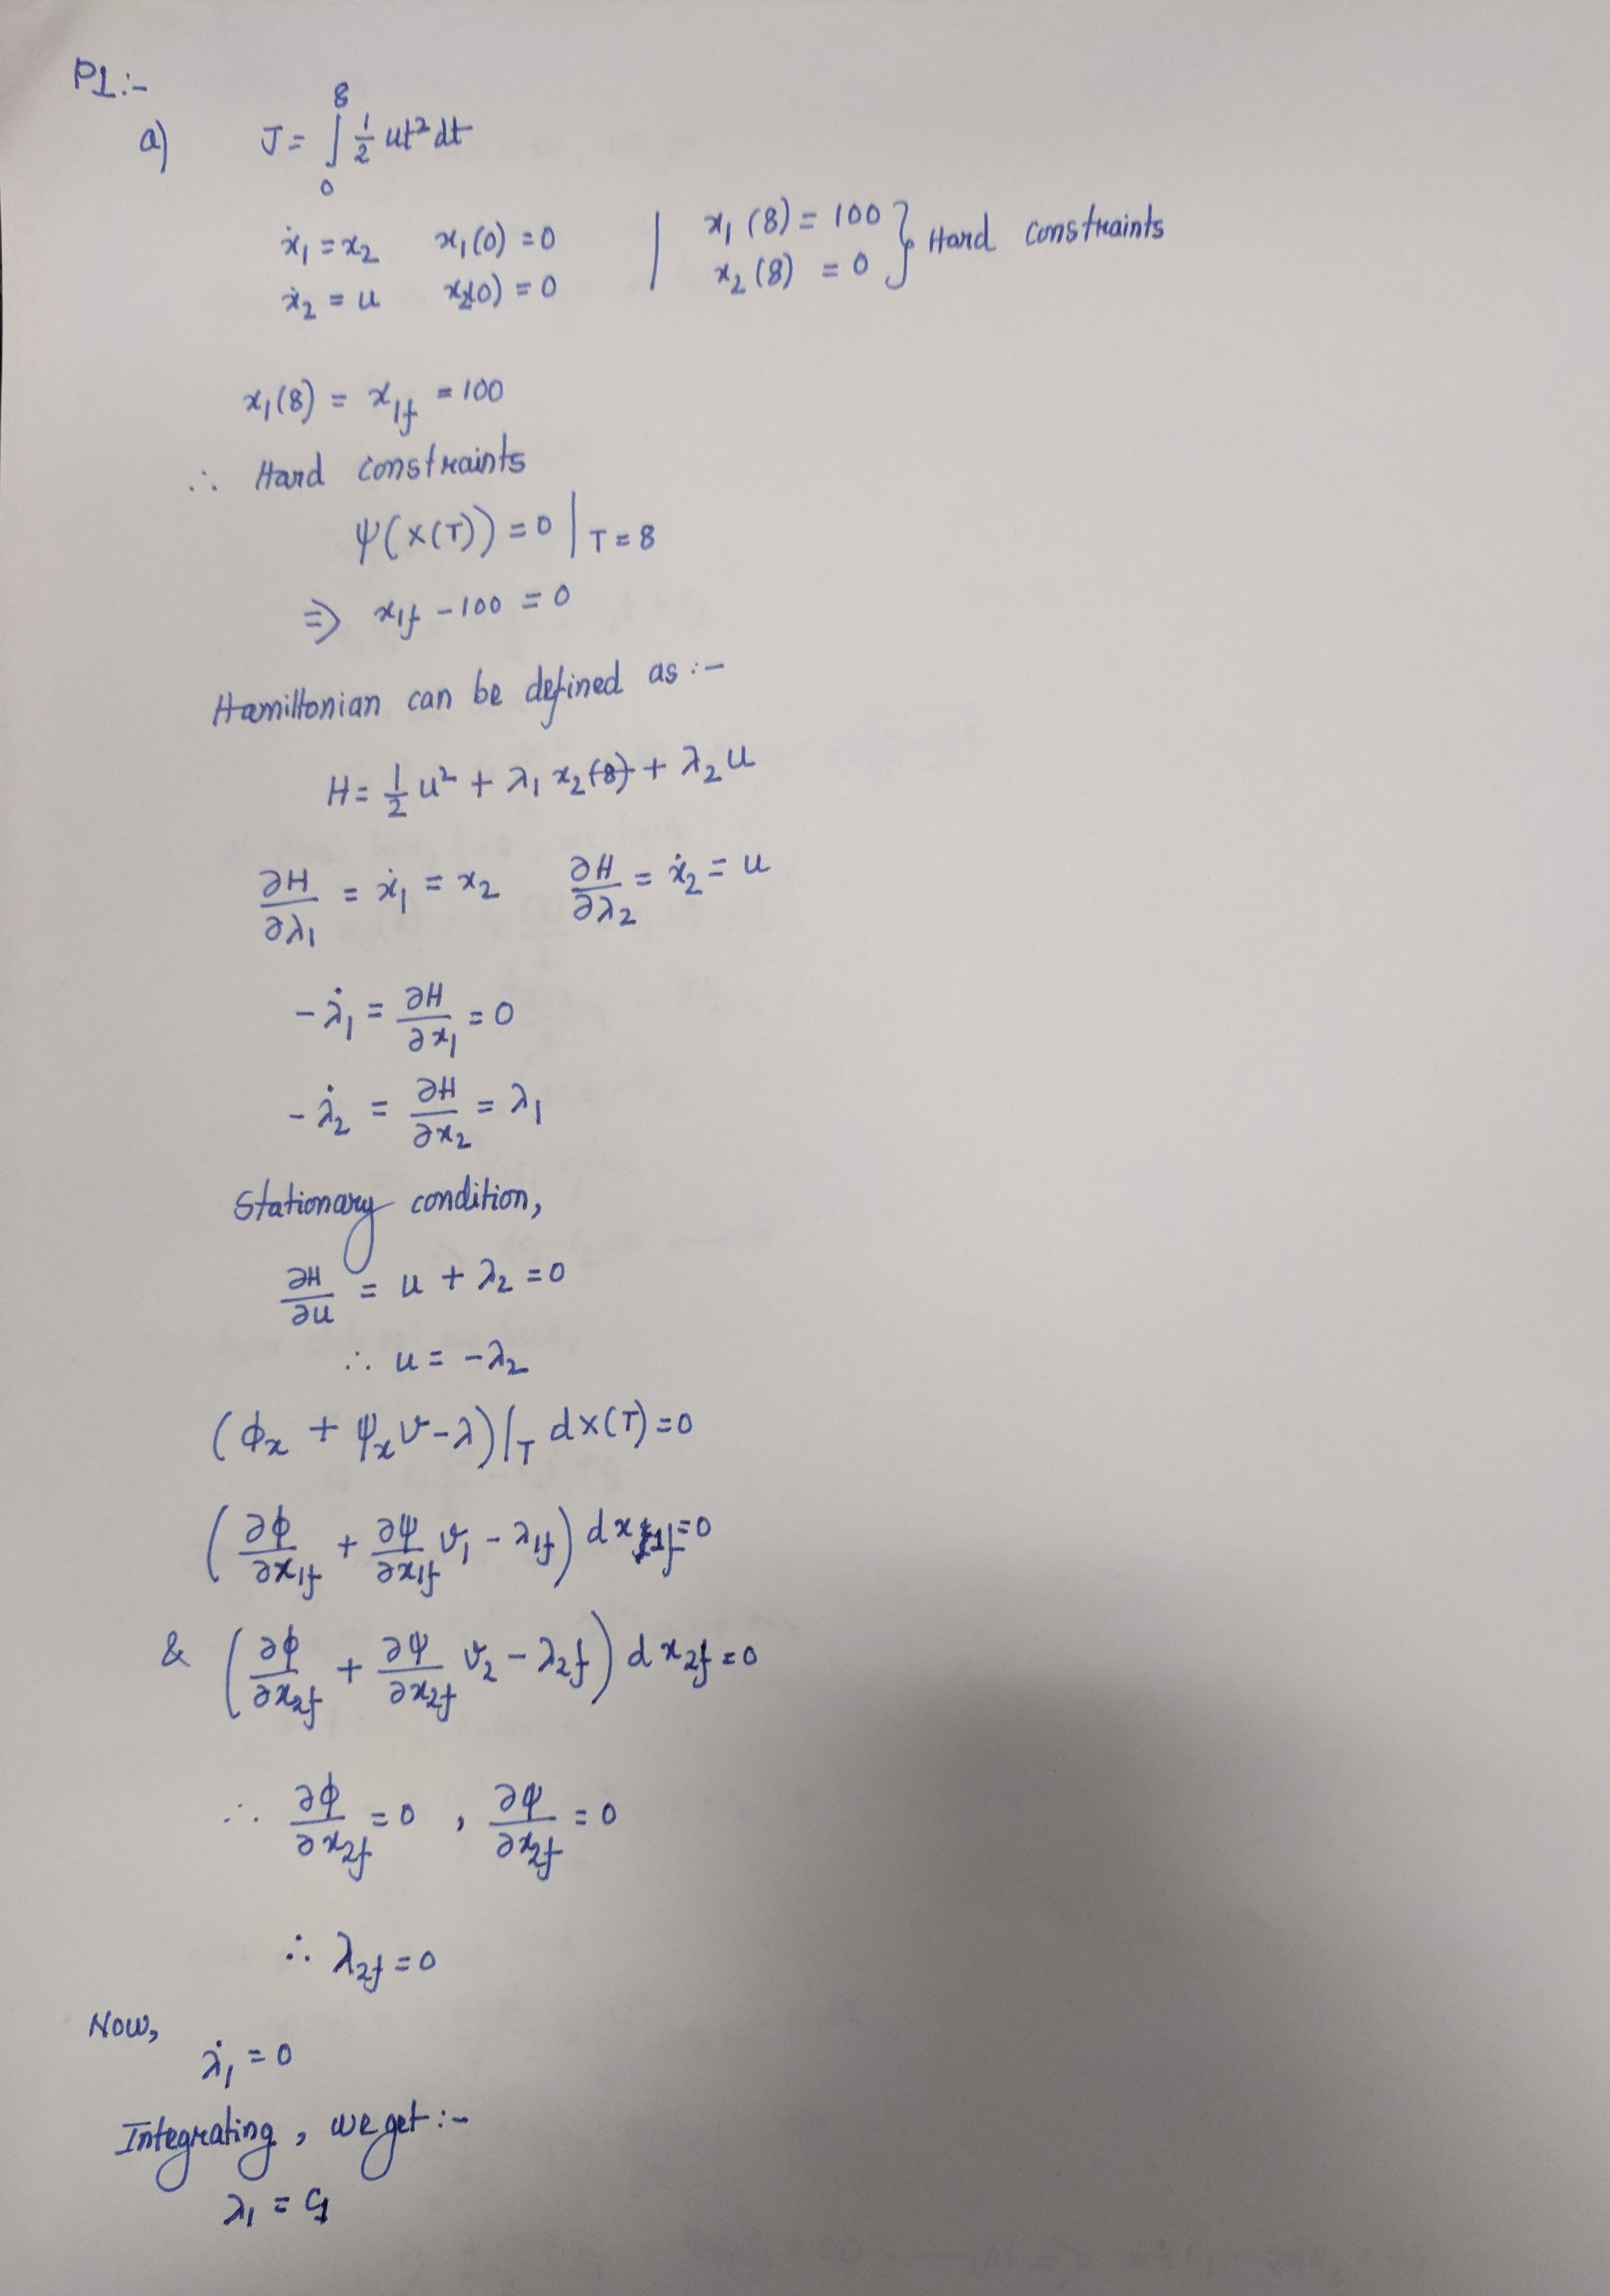 P1:-
a) J = ∫₀⁸ 1/2 ut² dt
ẋ₁ = x₂ x₁(0) = 0 | x₁(8) = 100 } Hard constraints
ẋ₂ = u x₂(0) = 0 | x₂(8) = 0
x₁(8) = x₁f = 100
∴ Hard constraints
ψ(x(T)) = 0 | T = 8
⇒ x₁f - 100 = 0
Hamiltonian can be defined as :-
H = 1/2 u² + λ₁ x₂(8) + λ₂ u
∂H/∂λ₁ = ẋ₁ = x₂ ∂H/∂λ₂ = ẋ₂ = u
-λ̇₁ = ∂H/∂x₁ = 0
-λ̇₂ = ∂H/∂x₂ = λ₁
Stationary condition,
∂H/∂u = u + λ₂ = 0
∴ u = -λ₂
(ϕx + ψx v - λ)|T dx(T) = 0
(∂ϕ/∂x₁f + ∂ψ/∂x₁f v₁ - λ₁f) dx₁f = 0
& (∂ϕ/∂x₂f + ∂ψ/∂x₂f v₂ - λ₂f) dx₂f = 0
∴ ∂ϕ/∂x₂f = 0 , ∂ψ/∂x₂f = 0
∴ λ₂f = 0
Now,
λ̇₁ = 0
Integrating, we get :-
λ₁ = C₁